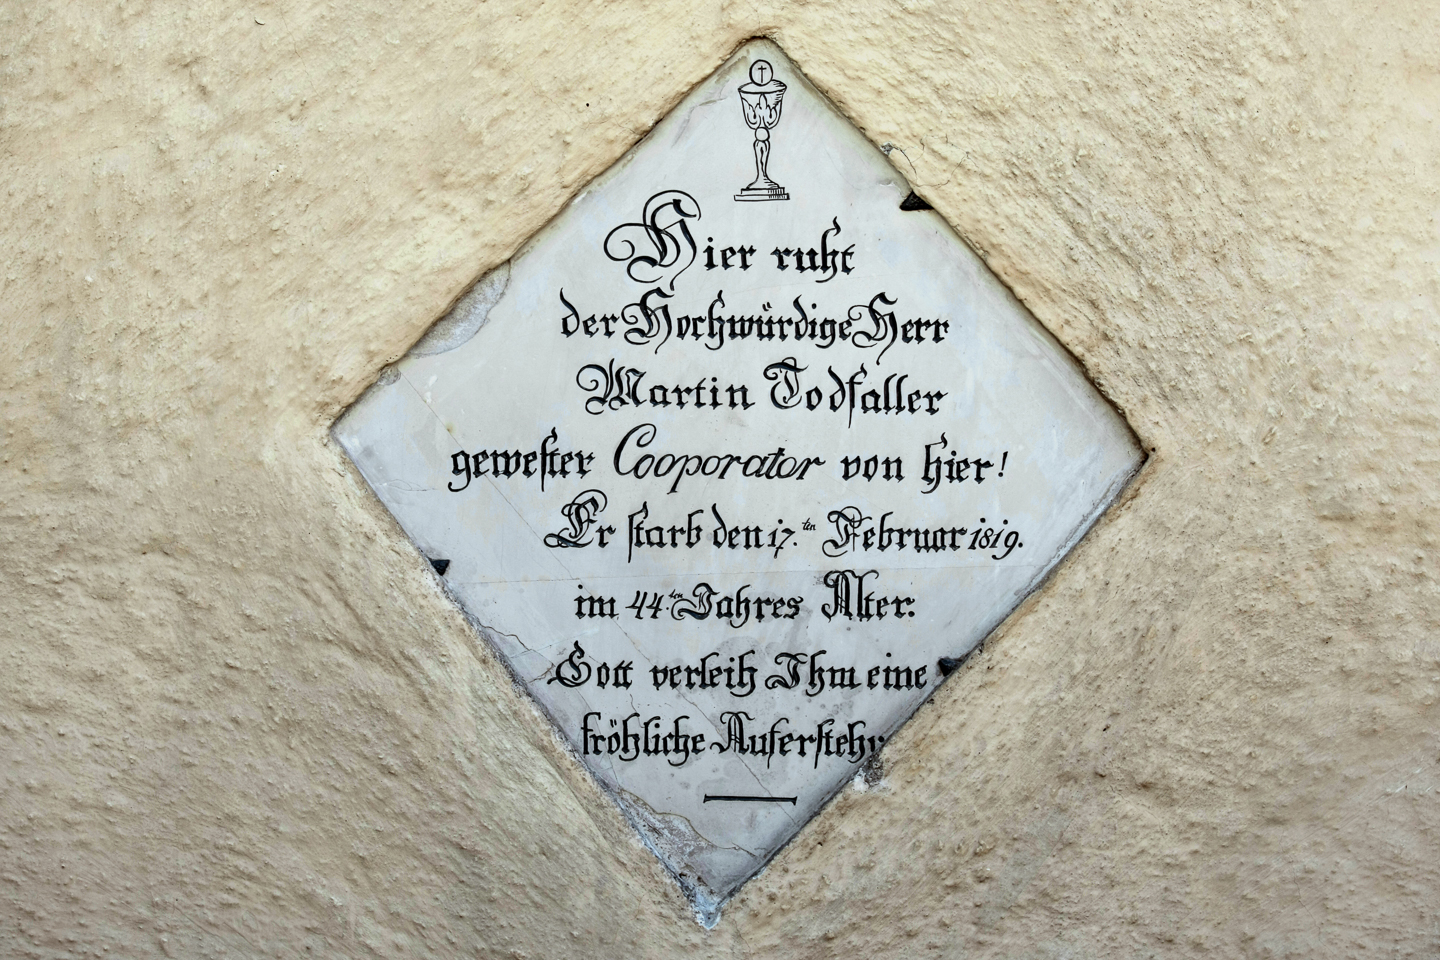 Hier ruht
der Hochwürdige Herr
Martin Todfaller
gewester Cooporator von hier!
Er starb den 17.ten Februar 1819.
im 44.ten Jahres Alter.
Gott verleih Ihm eine
fröhliche Auferstehr